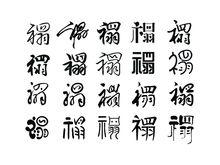 禤 禤 禤 禤 禤
禤 禤 禤 禤 禤
禤 禤 禤 禤 禤
禤 禤 禤 禤 禤